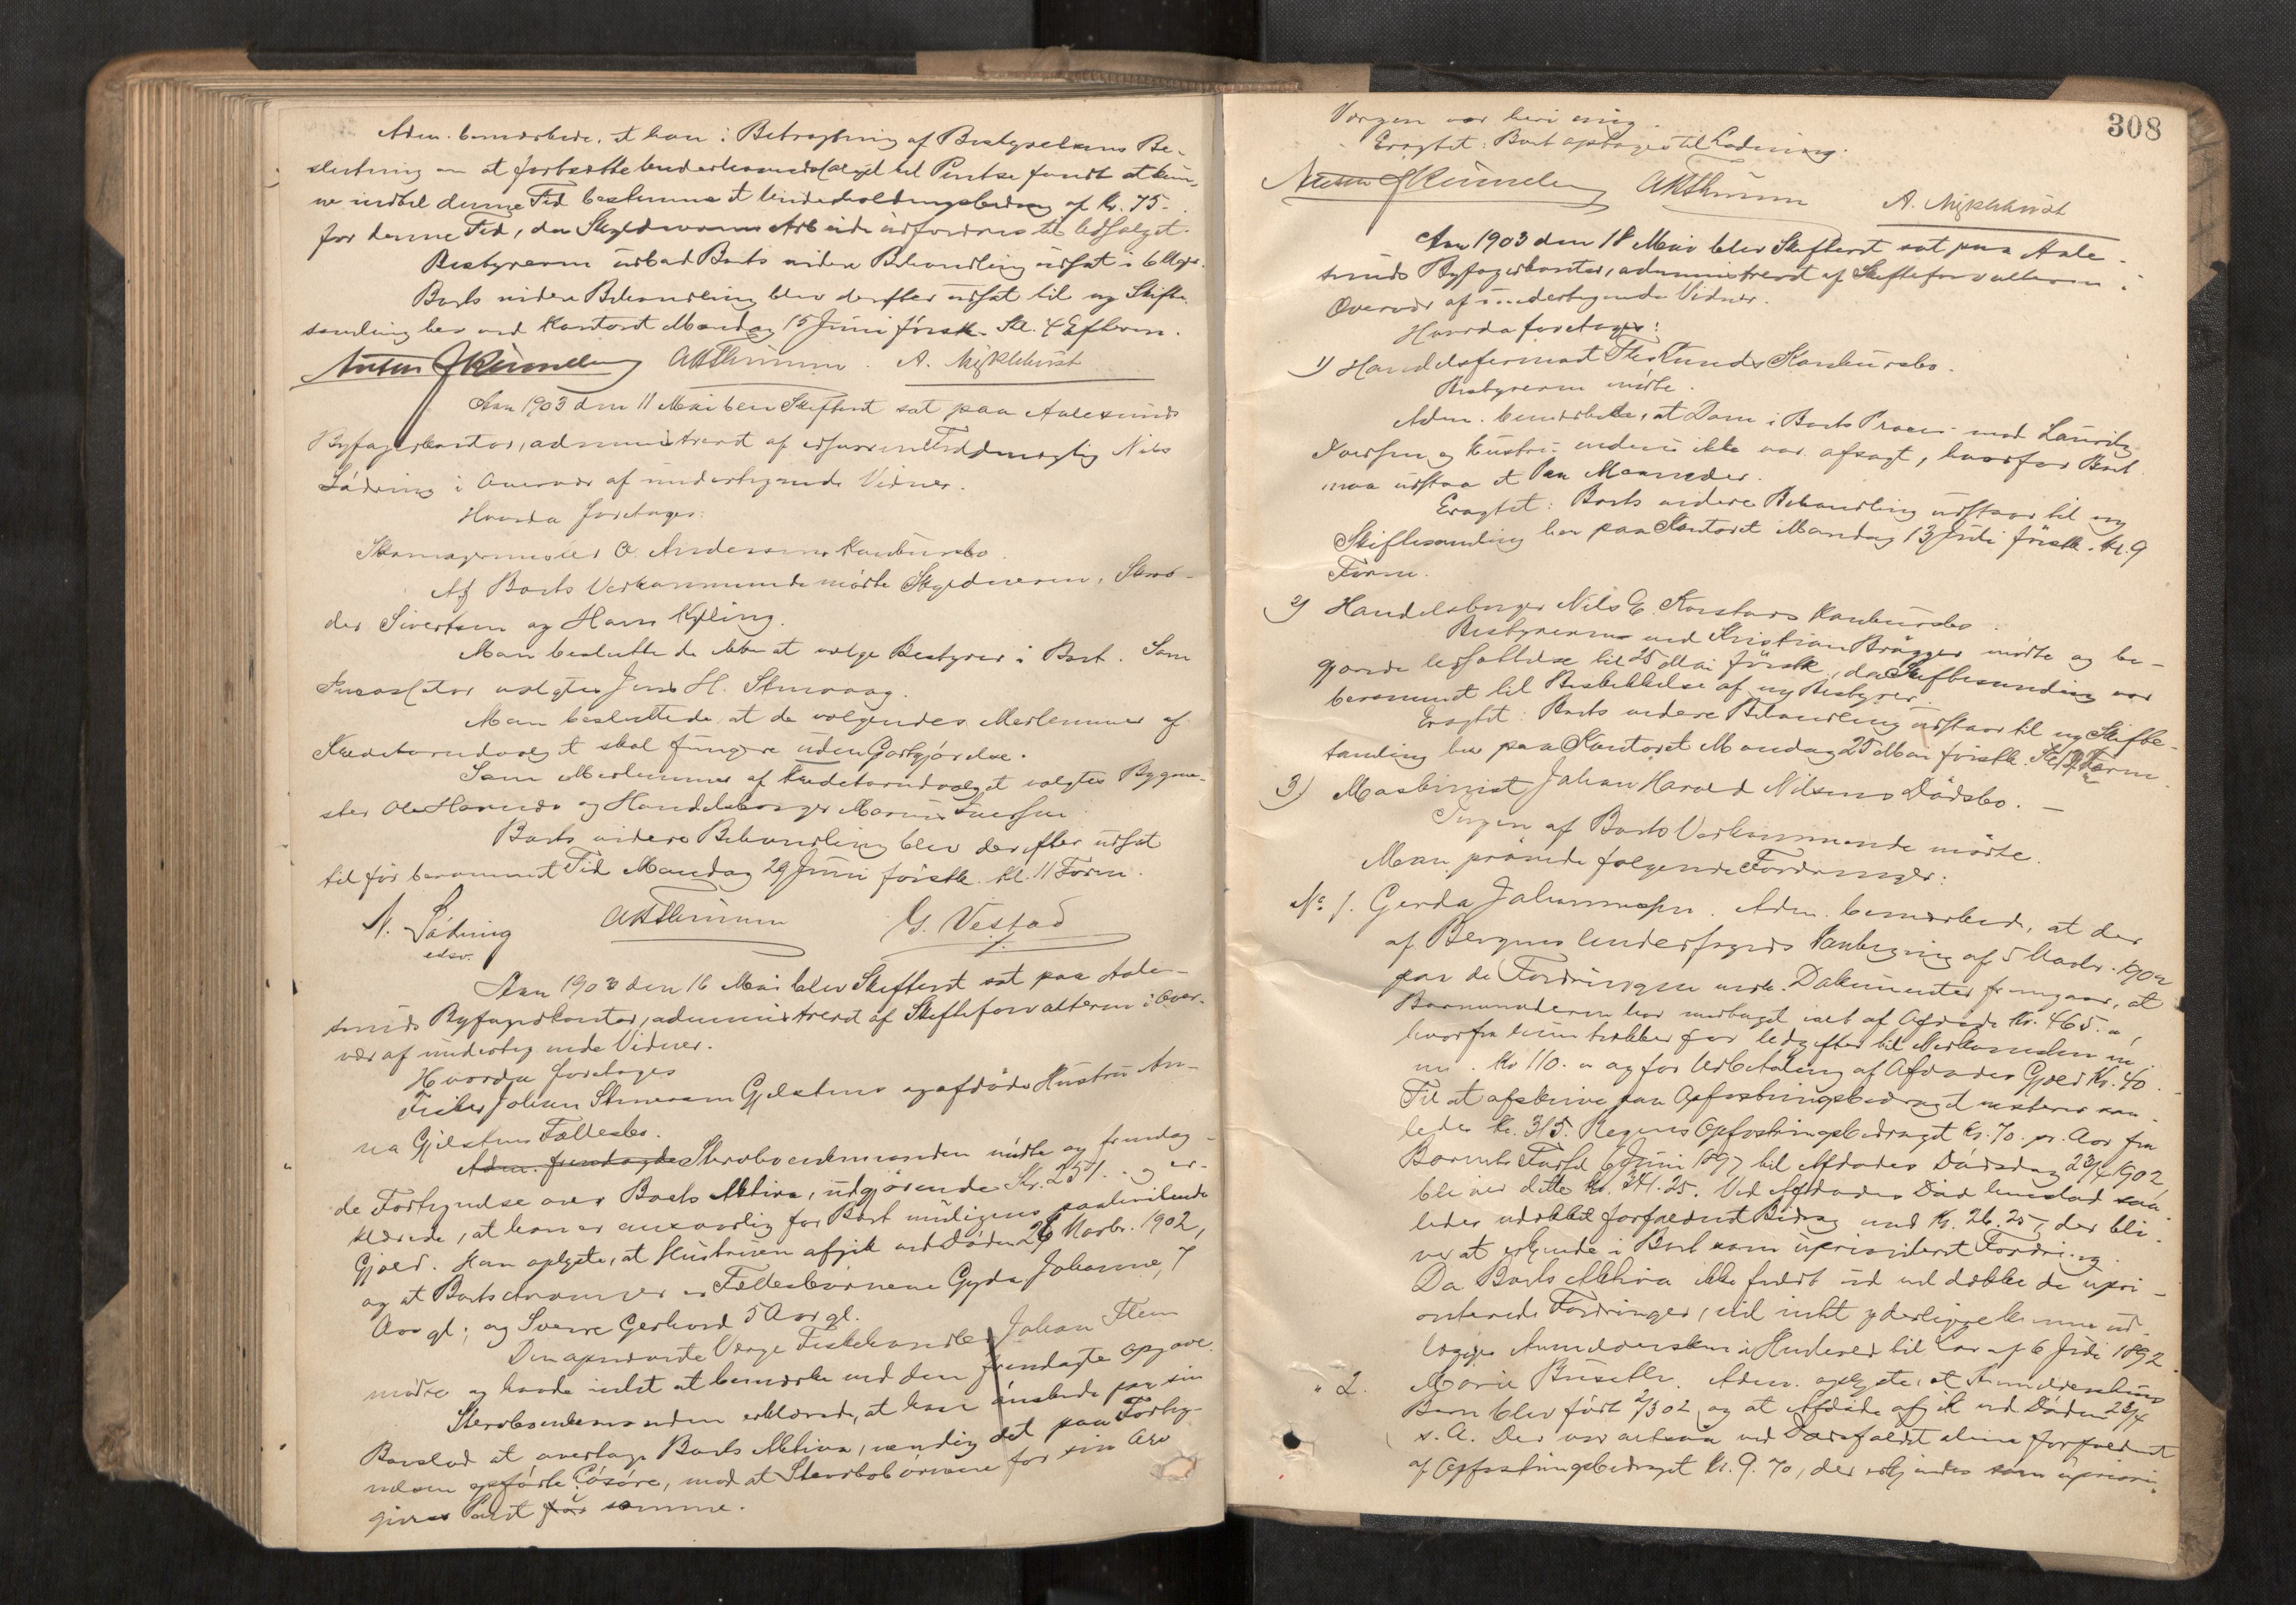 Adm. bemærkede, at han i Betragtning af Bestyrelsens Be-
slutning om at fortsætte til Pintse fandt at kun-
ne indtil denne Tid bestemme et Underholdningsbidrag af Kr. 75.-
for denne Tid, da Skyldnerens Arbeide udfordres til Udsalget.
Bestyreren udbad Boets videre Behandling udsat i 6 Uger.
Boets videre Behandling blev derefter udsat til ny Skifte-
samling her ved Kontoret Mandag 15 Juni førstk. Kl. 4 Efterm.
A. Myklebust
Aar 1903 den 11 Mai blev Skifteret sat paa Aalesunds
Byfogedkontor, administreret af edsvoren Fuldmægtig Nils
Lødning i Overvær af undertegnede Vidner.
Hvorda foretoges:
Skomagermester O. Andersens Konkursbo.
Af Boets Vedkommende mødte Skyldneren, Skræd-
der Sivertsen og Hans Kjpling.
Man besluttede ikke at vælge Bestyrer i Boet. Som
Inkassator valgtes Jens H.
Man besluttede, at de vælgendes Medlemmer af
Kreditorudvalget skal fungere uden Godtgjørelse.
Som Medlemmer af Kreditorudvalget valgtes Bygme-
ster Ole og Handelsborger Iversen.
Boets videre Behandling blev derefter udsat
til før berammet Tid Mandag 29 Juni førstk. kl. 11 Form.
N. Lødning G. Vestad
edsv.
Aar 1903 den 16 Mai blev Skifteret sat paa Aale-
sunds Byfogedkontor, administreret af Skifteforvalteren i Over-
vær af undertegnede Vidner.
Hvorda foretoges
Fisker Johan Gjelstens og afdøde Hustru An-
na Gjelstens Fællesbo.
Adm. fremlagde Stervboenkemanden mødte og fremlag-
de Fortegnelse over Boets Aktiva, udgjørende Kr. 251.- og er-
klærede, at han er ansvarlig for Boet muligens paahvilende
Gjæld. Han oplyste, at Hustruen afgik ved Døden 26 Novbr. 1902,
og at Boets Arvinger er Fællesbørnene Gyda Johanne, 7
Aar gl., og Sverre Gerhard 5 Aar gl.
Den opnævnte Værge Fiskehandler Johan Flem
mødte og havde intet at bemærke ved den fremlagte Opgave.
Stervboenkemanden erklærede, at han ønskede paa sin
Boeslod at overtage Boets Aktiva, nemlig det paa Forteg-
nelsen opførte Løsøre, mod at Stervbobørnene for sin Arv
gives Pant for i samme.
308
Værgen var heri enig.
Eragtet: Boet optages til Lodning.
A. Myklebust
Aar 1903 den 18 Mai blev Skifteret sat paa Aale-
sunds Byfogedkontor, administreret af Skifteforvalteren i
Overvær af undertegnede Vidner.
Hvorda foretoges:
1) Handelsfirmaet Konkursbo.
Bestyreren mødte.
Adm. bemærkede, at Dom i Boets Proces mod Lauritz
Iversen og Hustru endnu ikke var afsagt, hvorfor Boet
maa udstaa et Par Maaneder.
Eragtet: Boets videre Behandling udstaar til ny
Skiftesamling her paa Kontoret Mandag 13 Juli førstk. kl. 9
Form.
2) Handelsborger Nils E. Konkursbo.
Bestyreren ved Kristian Brøgger mødte og be-
gjærede Udsættelse til 25 Mai førstk., da Skiftesamling var
berammet til Beskikkelse af ny Bestyrer.
Eragtet: Boets videre Behandling udstaar til ny Skifte-
samling her paa Kontoret Mandag 25 Mai førstk. Kl. Form.
3) Maskinist Johan Harald Nilsens Dødsbo. -
Ingen af Boets Vedkommende mødte.
Man prøvede følgende Fordringer:
No 1. Gerda Johannessen. Adm. bemærkede, at der
af Bergens Underfogeds af 5 Novbr. 1902
paa de Fordringen medf. Dokumenter fremgaar, at
Barnemoderen har modtaget ialt af Afdøde Kr. 465.-,
hvorfra hun trækker for Udgifter til Nedkomsten
Kr. 110.- og for Udbetaling af Afdødes Gjæld Kr. 40.-
Til at afskrive paa Opfostringsbidraget resterer saa-
ledes Kr. 315. Regnes Opfostringsbidraget Kr. 70. pr. Aar fra
Barnets Fødsel 6 Juni 1897 til Afdødes Dødsdag 23/4 1902
bliver dette Kr. 341.25. Ved Afdødes Død henstod saa-
ledes udækket forfaldent Bidrag med Kr. 26.25, der bli-
ver at erkjende i Boet som uprioriteret Fordring.
Da Boets Aktiva ikke fuldt ud vil dække de upri-
oriterede Fordringer, vil intet yderligere kunne ud-
lægges Anmeldersken i Henhold til Lov af 6 Juli 1892.
" 2. Marie. Adm. oplyste, at Anmelderskens
Barn blev født 2/3 02, og at Afdøde afgik ved Døden 23/4
s. A. Der var altsaa ved Dødsfaldet alene forfaldent
af Opfostringsbidraget Kr. 9.70, der erkjendes som upriori-